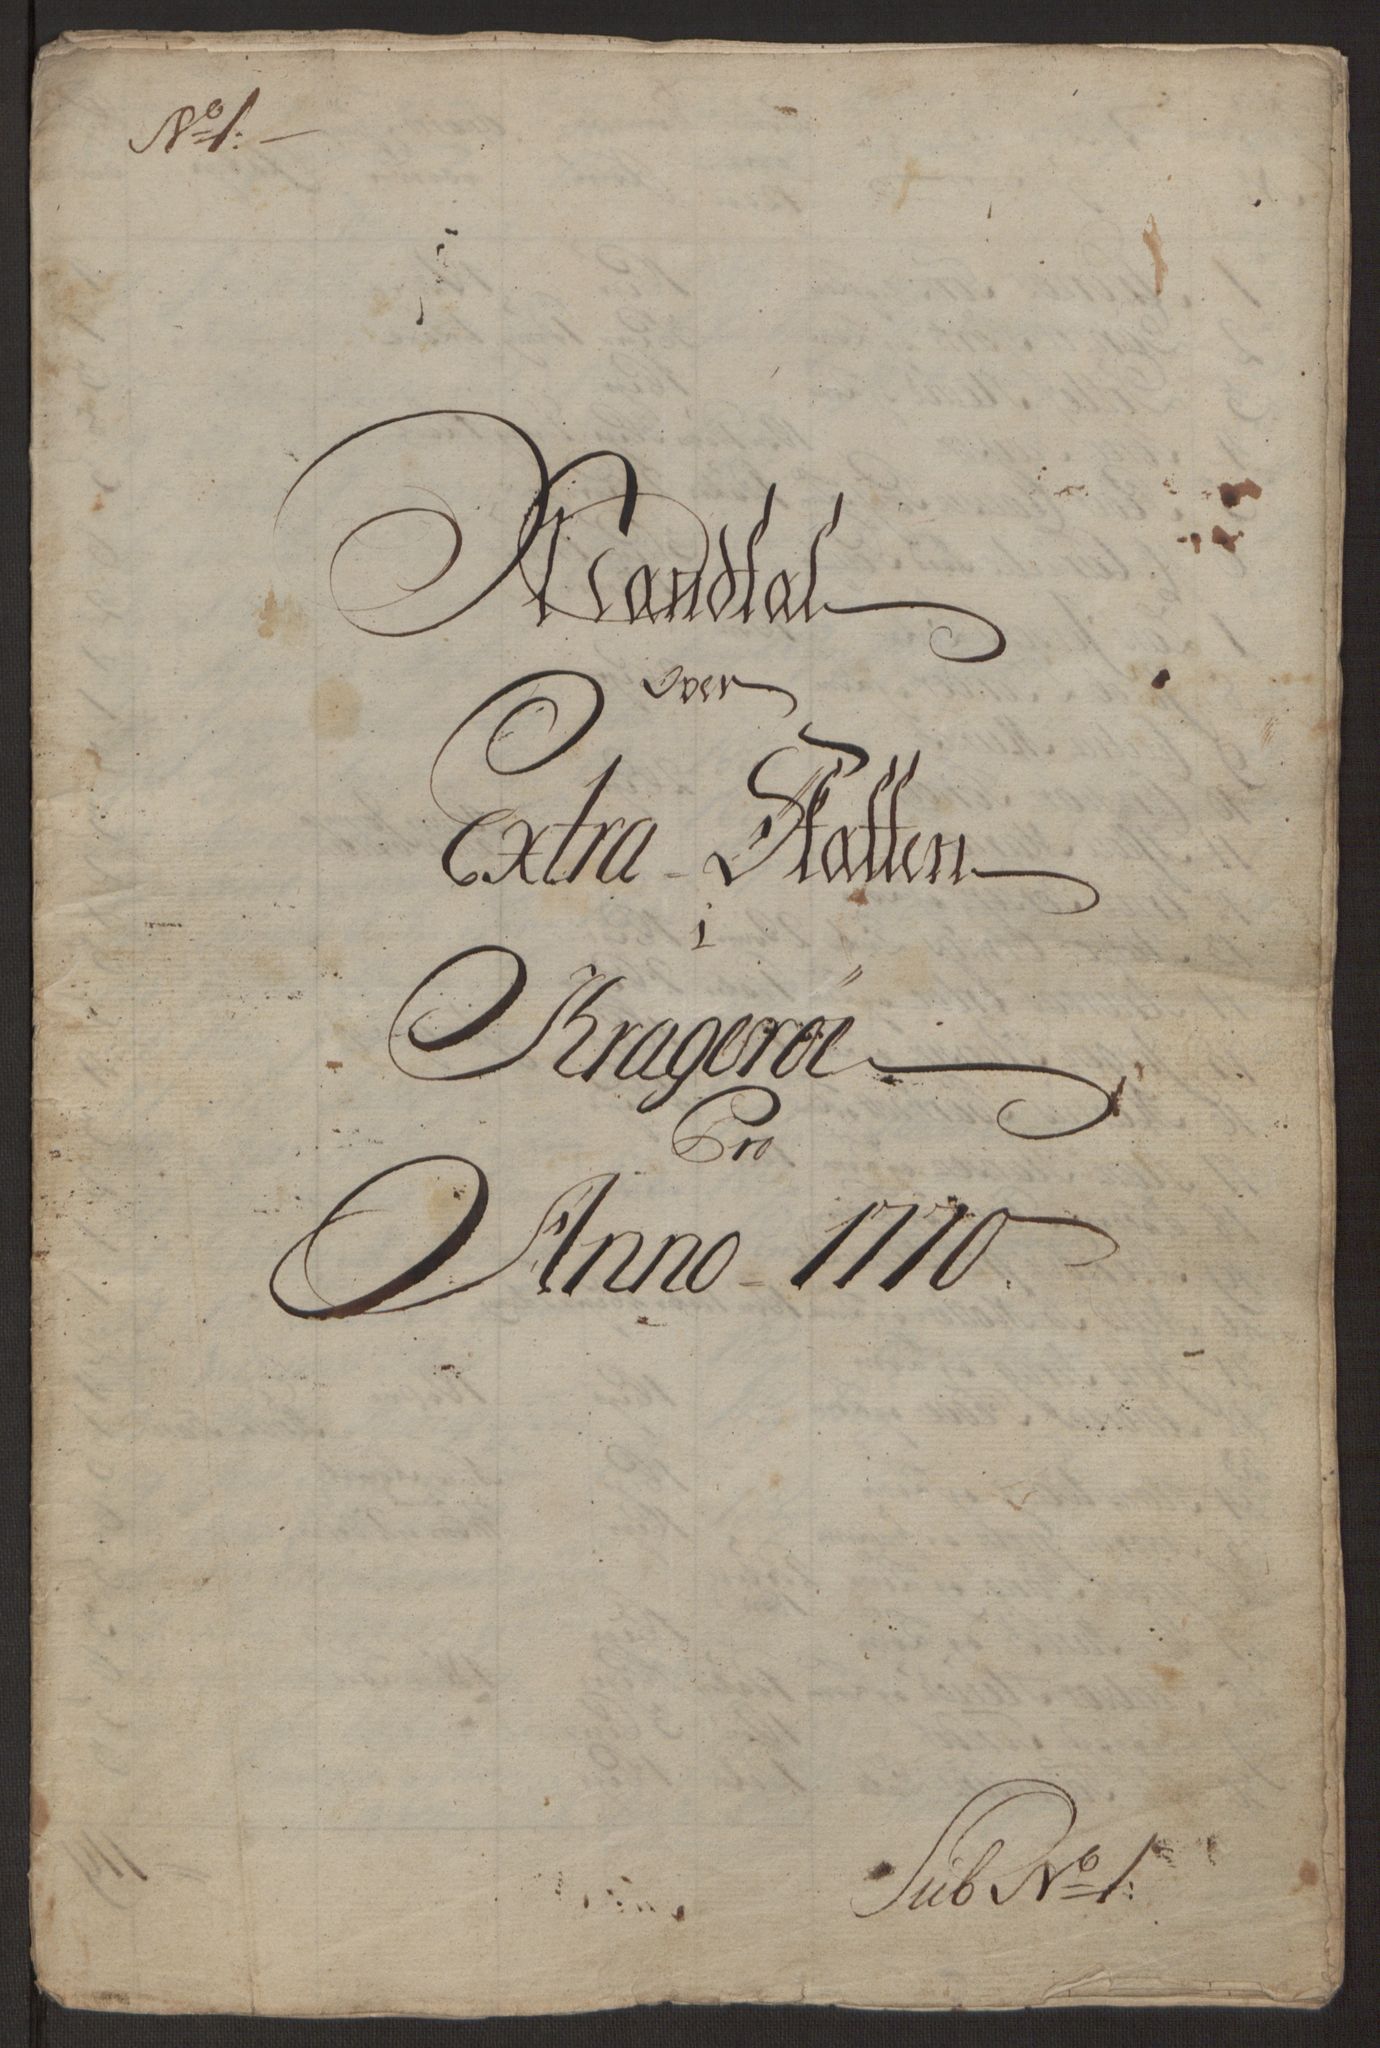 No 1.
Mandtal
Over
Extra-Skatten
i
Kragerøe
Pro
Anno-1770.
Sub No 1.